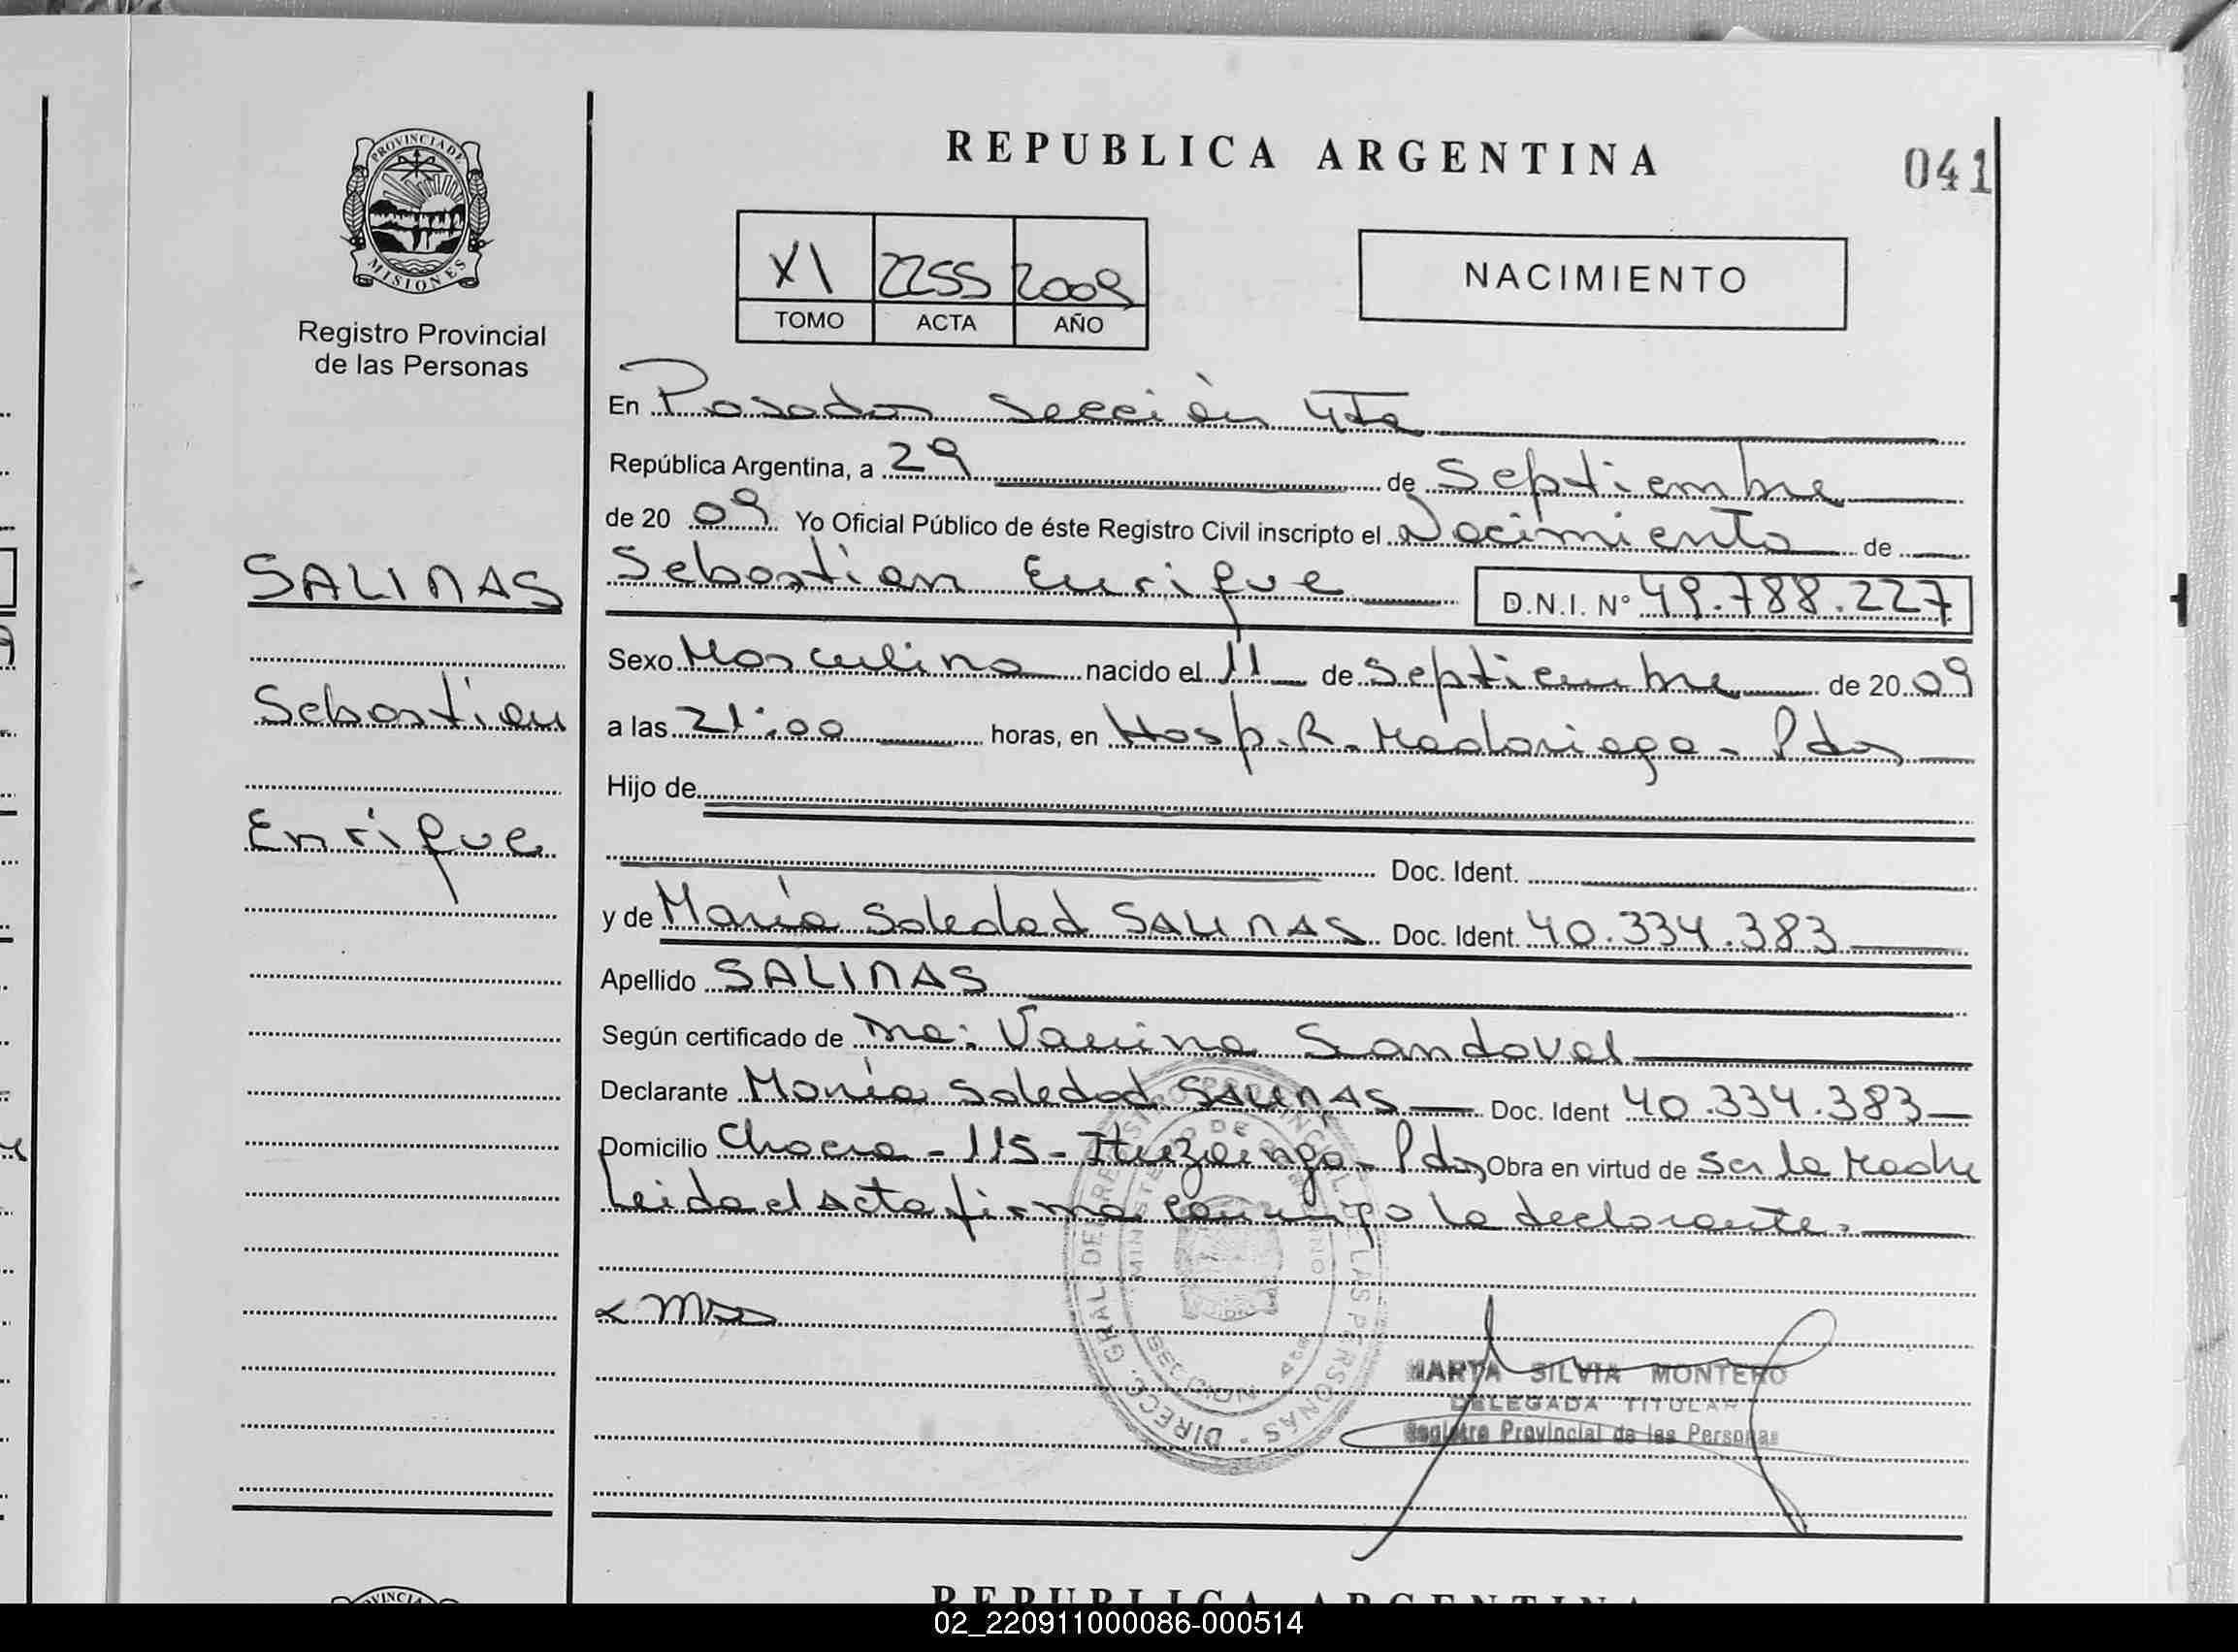 REPUBLICA ARGENTINA
041
PROVINCIA DE
MISIONES
Registro Provincial
de las Personas
XI 2255 2009
TOMO ACTA AÑO
NACIMIENTO
En Posadas Sección 4ta
República Argentina, a 29 de Septiembre
de 20 09 Yo Oficial Público de éste Registro Civil inscripto el Nacimiento de
Sebastian Enrique D.N.I. Nº 49.788.227
Sexo Masculino nacido el 11 de Septiembre de 20 09
a las 21:00 horas, en Hosp. R. Madariaga - Pdas
Hijo de
Doc. Ident.
y de María Soledad SALINAS Doc. Ident. 40.334.383
Apellido SALINAS
Según certificado de Vanina Sandoval
Declarante María Soledad SALINAS Doc. Ident 40.334.383
Domicilio Chacra - 115 - Ituzaingo - Pdas Obra en virtud de ser la Madre
Leida el Acta firma conmigo la declarante.
SALINAS
Sebastian
Enrique
DIREC. GRAL. DE REGISTRO PROVINCIAL DE LAS PERSONAS
MINISTERIO DE GOBIERNO
SECCION 4ta
MARTA SILVIA MONTERO
DELEGADA TITULAR
Registro Provincial de las Personas
PROVINCIA
REPUBLICA ARGENTINA
02_220911000086-000514